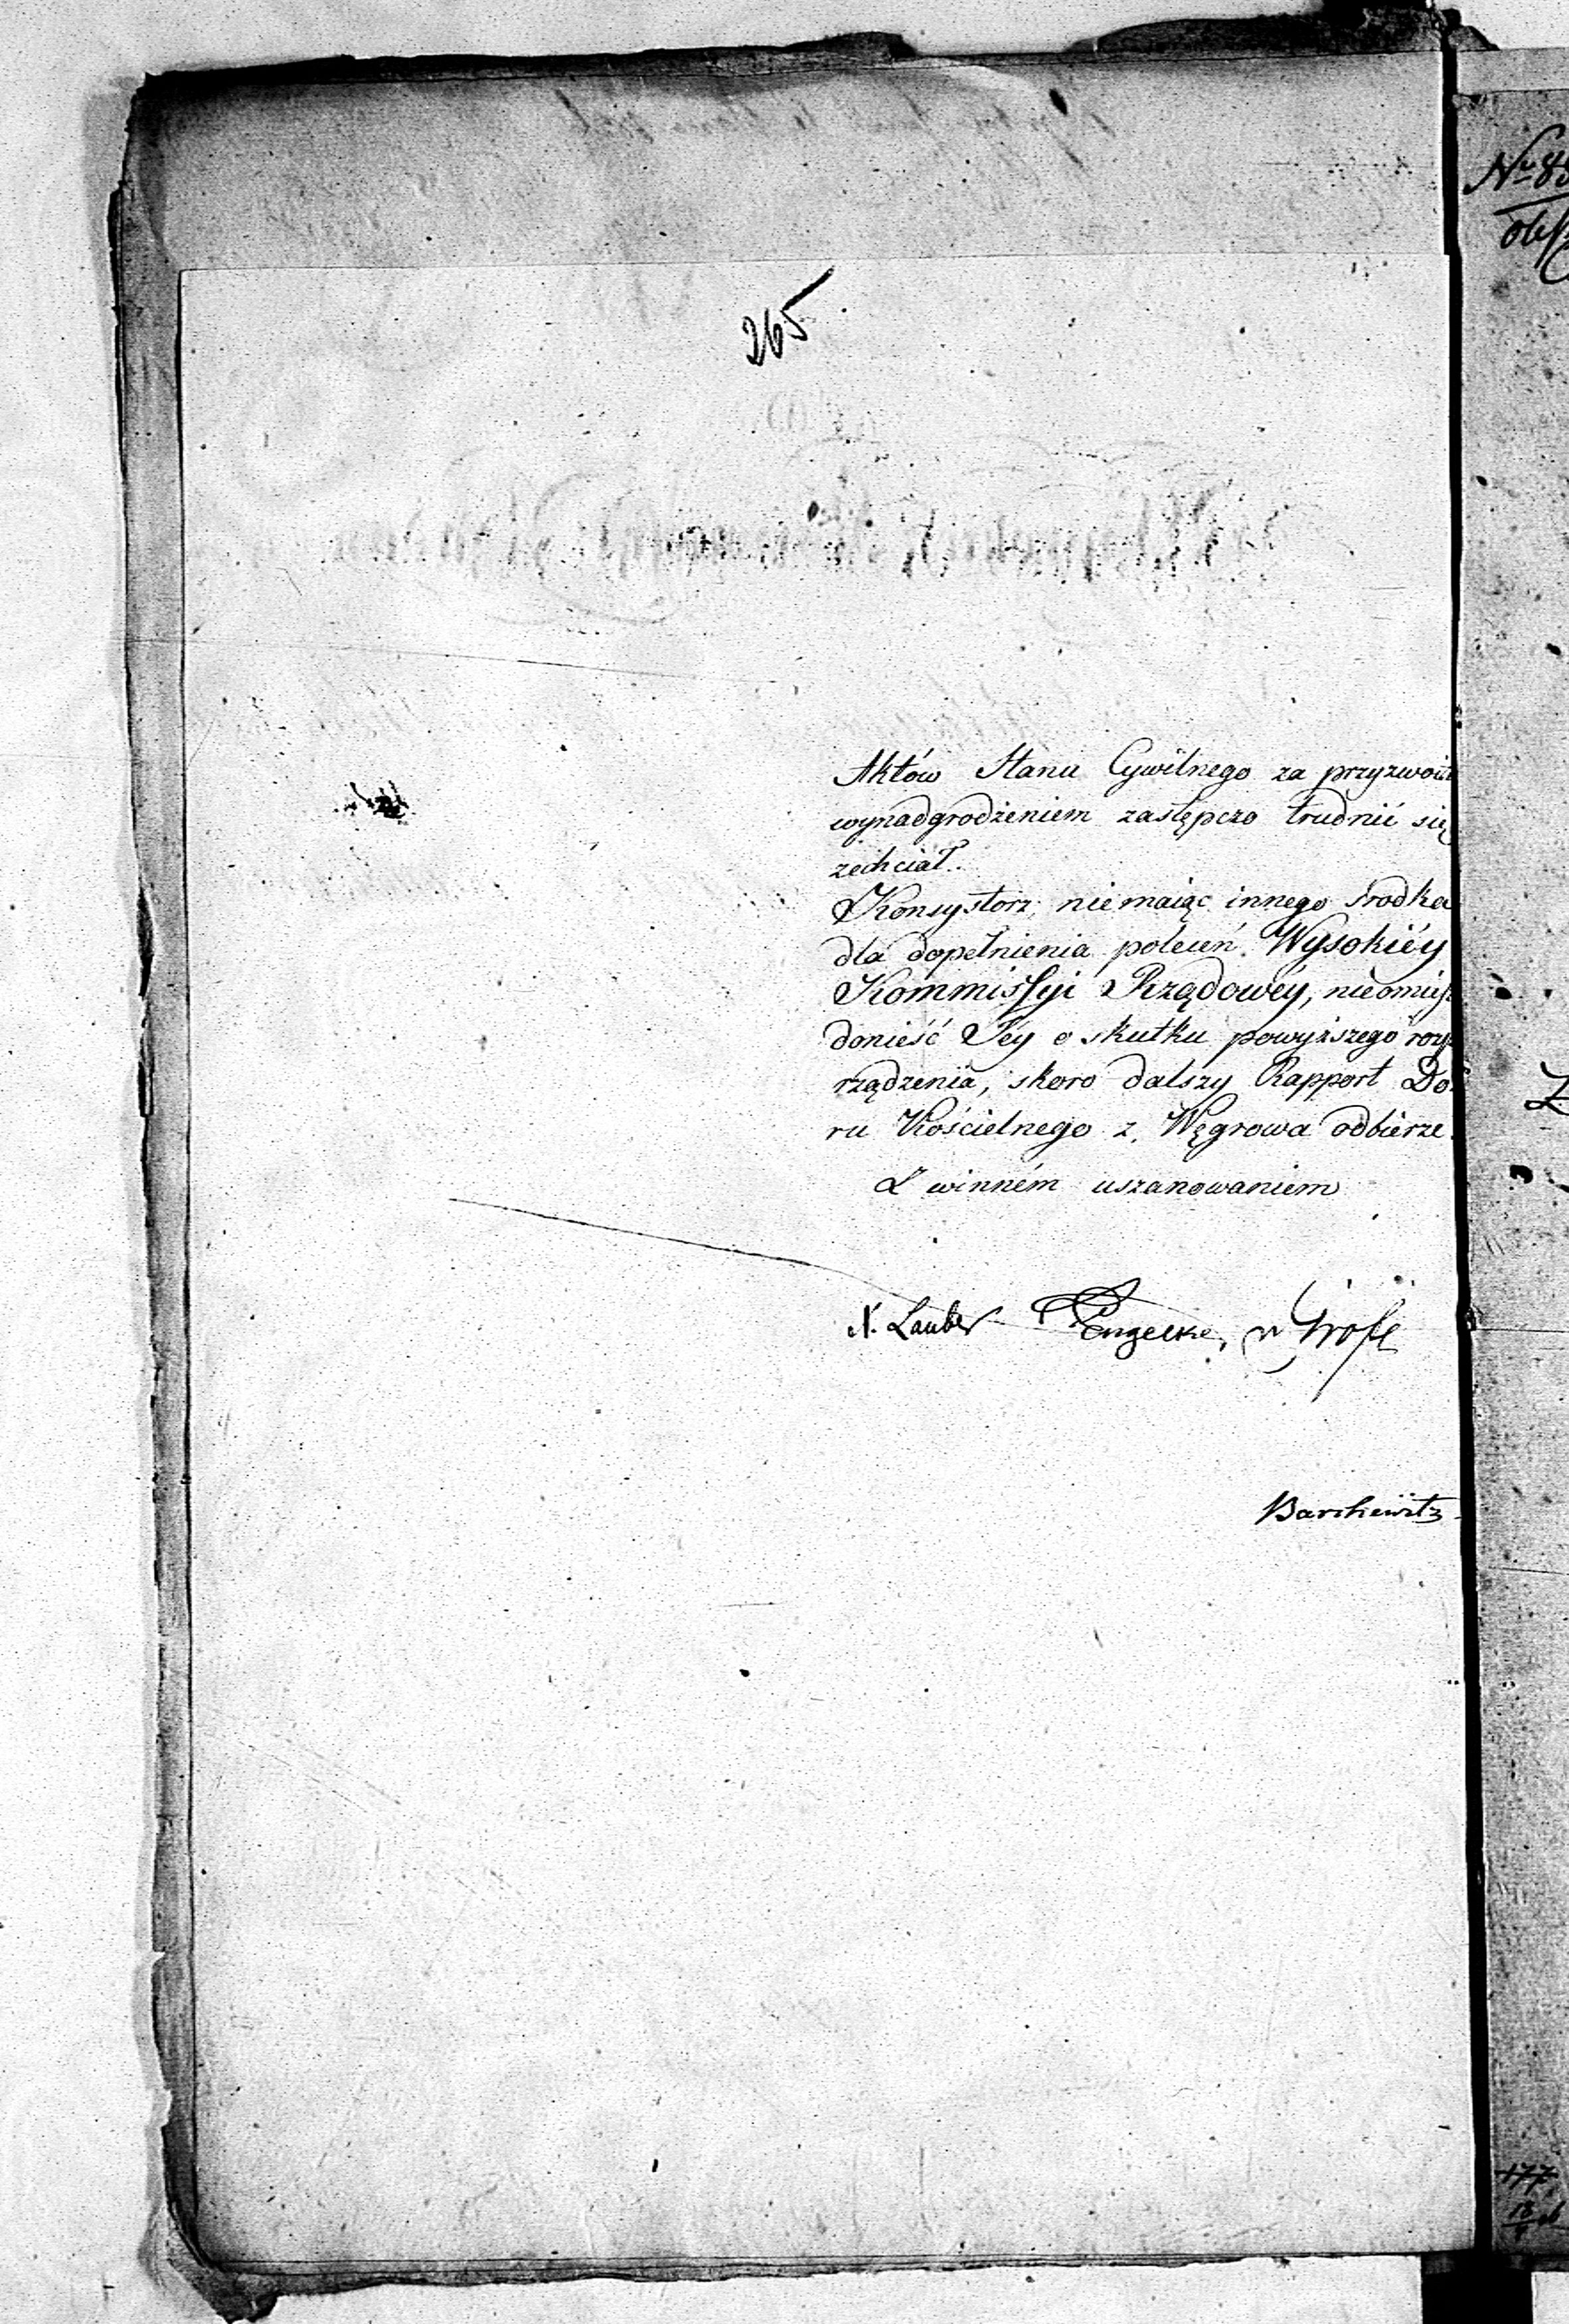 265
Aktów Stanu Cywilnego za przyzwoit
wynadgrodzeniem zastępczo trudnić się
zechciał.
Konsystorz, niemaiąc innego środka
dla dopełnienia poleceń Wysokiéy
Kommissyi Rządowéy, nieomie
donieść Jéy o skutku powyższego roz
rządzenia, skoro dalszy Rapport Do
ru Kościelnego z Węgrowa odbierze.
Z winném uszanowaniem
Lauber Engelke,
Nro 8
Z
177
18